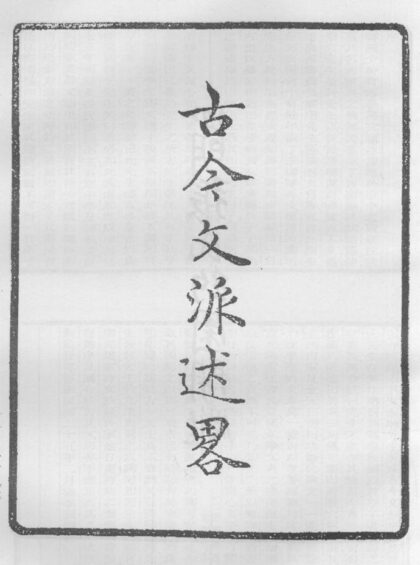 古今文派述畧